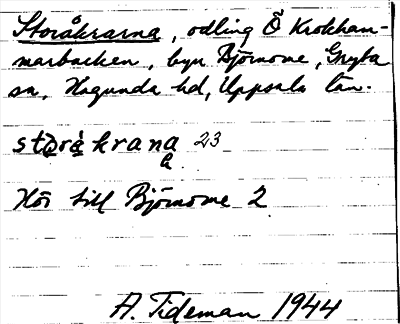 Storåkrarna, odling Ö Krokham-
marbacken, byn Björnome, Gryta
sn, Hagunda hd, Uppsala län.
stòråkrana 23
Hör till Björnome 2
A. Tideman 1944